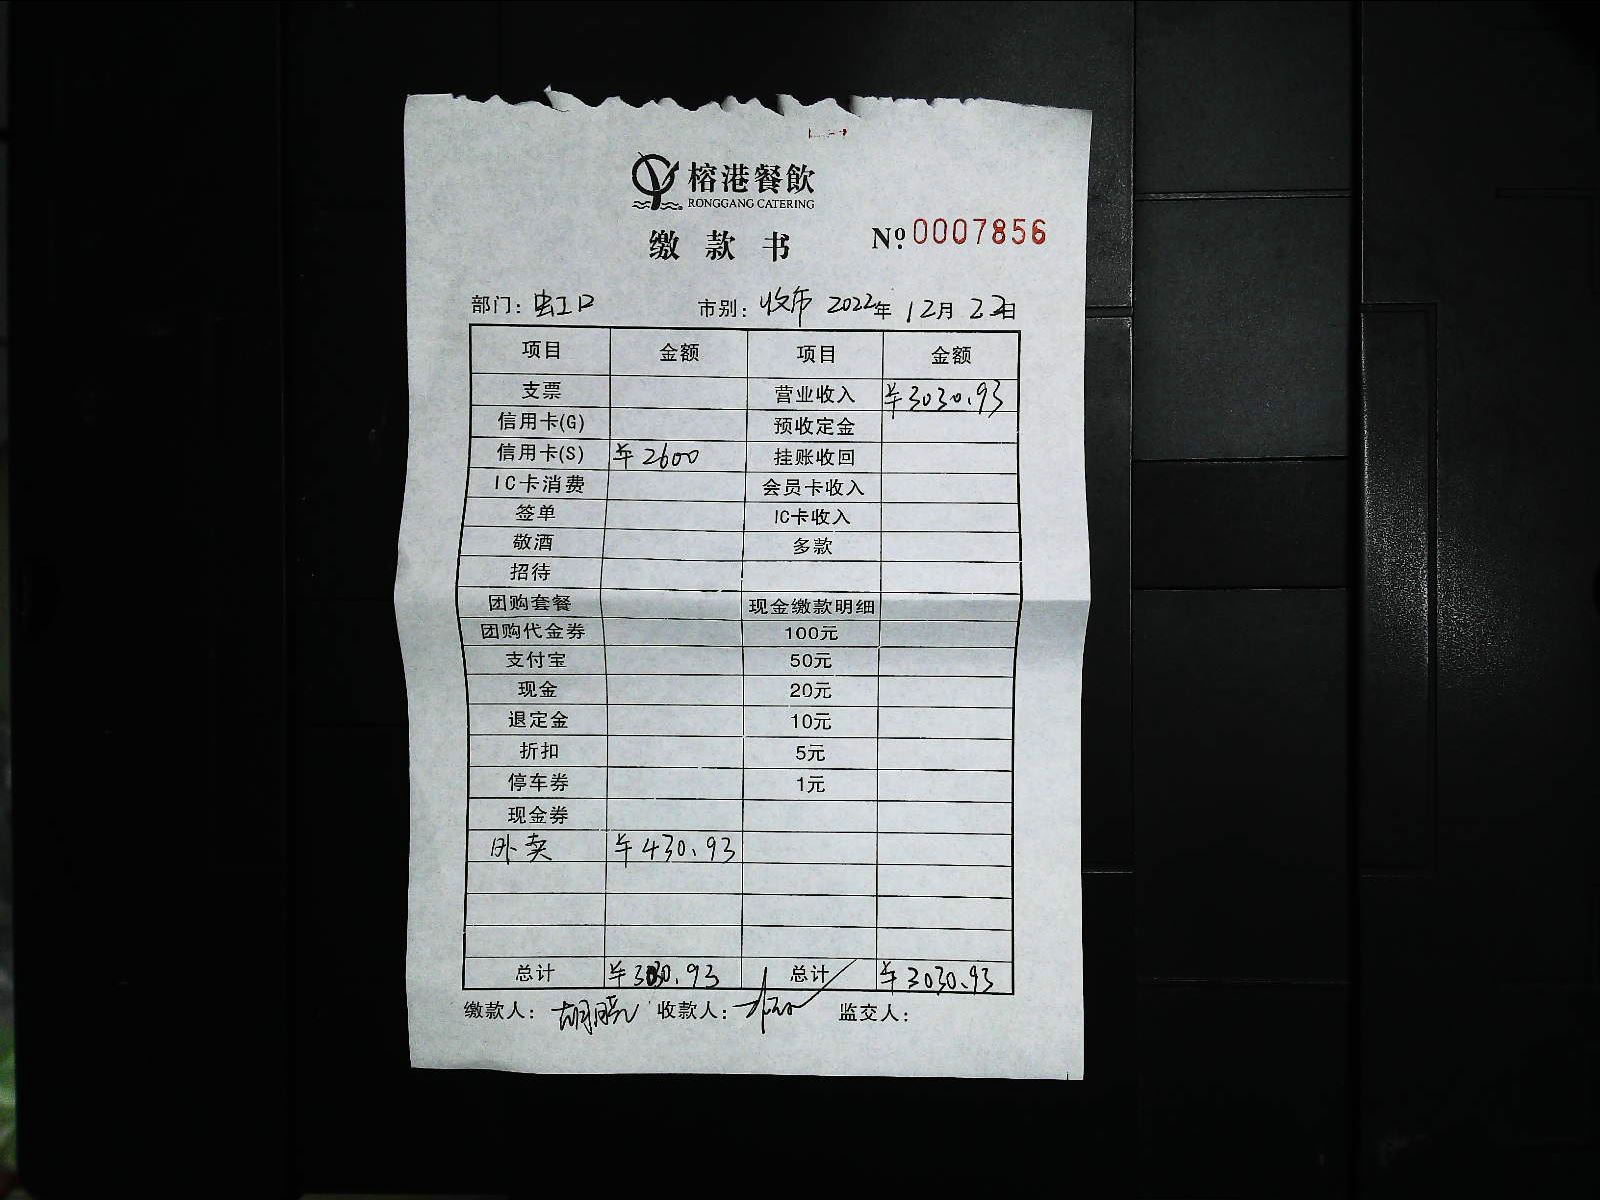 榕港餐飲
RONGGANG CATERING
缴款书 №0007856
部门：虹口 市别：收市 2022年12月22日
项目 金额 项目 金额
支票 营业收入 ¥3030.93
信用卡(G) 预收定金
信用卡(S) ¥2600 挂账收回
IC卡消费 会员卡收入
签单 IC卡收入
敬酒 多款
招待
团购套餐 现金缴款明细
团购代金券 100元
支付宝 50元
现金 20元
退定金 10元
折扣 5元
停车券 1元
现金券
外卖 ¥430.93
总计 ¥3030.93 总计 ¥3030.93
缴款人：胡晓 收款人： 监交人：